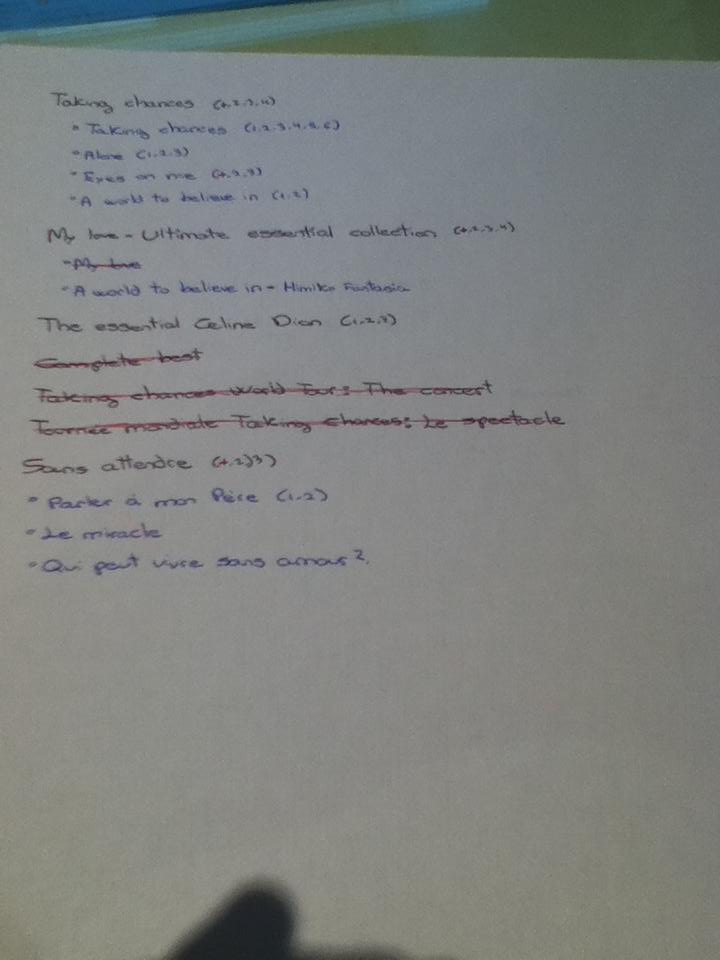 Taking chances (1,2,3,4)
• Taking chances (1,2,3,4,5,6)
• Alone (1,2,3)
• Eyes on me (1,2,3)
• A world to believe in (1,2)
My love - Ultimate essential collection (1,2,3,4)
• My love
• A world to believe in - Himiko Fantasia
The essential Celine Dion (1,2,3)
Complete best
Taking chances World Tour: The concert
Tournée mondiale Taking Chances: Le spectacle
Sans attendre (1,2,3)
• Parler à mon Père (1,2)
• Le miracle
• Qui peut vivre sans amour?